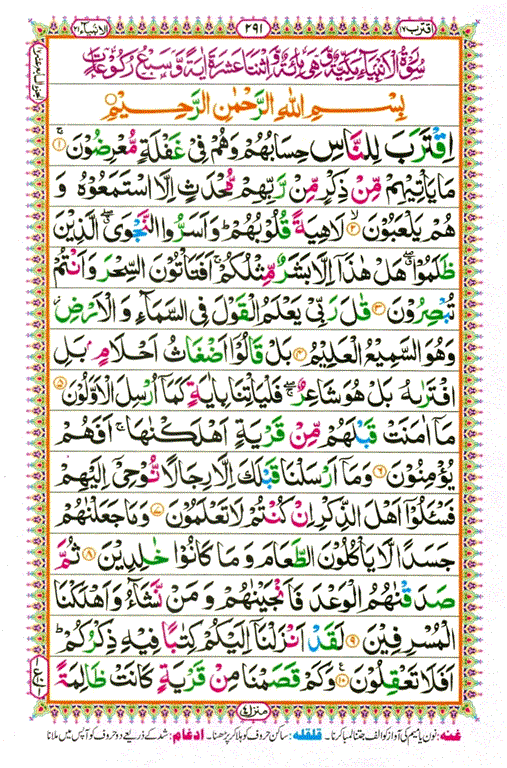 اقترب ١٧
٢٩١
الانبیآء ٢١
سُوْرَةُ الْاَنْۢبِیَآءِ مَكِّیَّةٌ وَّهِیَ مِائَةٌ وَّاثْنَتَا عَشْرَةَ اٰیَةً وَّسَبْعُ رُكُوْعَاتٍ
بِسْمِ اللّٰهِ الرَّحْمٰنِ الرَّحِیْمِ
اِقْتَرَبَ لِلنَّاسِ حِسَابُهُمْ وَهُمْ فِیْ غَفْلَةٍ مُّعْرِضُوْنَ ۚ﴿۱﴾
مَا یَاْتِیْهِمْ مِّنْ ذِكْرٍ مِّنْ رَّبِّهِمْ مُّحْدَثٍ اِلَّا اسْتَمَعُوْهُ وَ
هُمْ یَلْعَبُوْنَ ۙ﴿۲﴾ لَاهِیَةً قُلُوْبُهُمْ ؕ وَاَسَرُّوا النَّجْوَی ۖۗ الَّذِیْنَ
ظَلَمُوْا ۖۗ هَلْ هٰذَاۤ اِلَّا بَشَرٌ مِّثْلُكُمْ ۚ اَفَتَاْتُوْنَ السِّحْرَ وَاَنْتُمْ
تُبْصِرُوْنَ ﴿۳﴾ قٰلَ رَبِّیْ یَعْلَمُ الْقَوْلَ فِی السَّمَآءِ وَ الْاَرْضِ ؗ
وَهُوَ السَّمِیْعُ الْعَلِیْمُ ﴿۴﴾ بَلْ قَالُوْۤا اَضْغَاثُ اَحْلَامٍۭ بَلِ
افْتَرٰىهُ بَلْ هُوَ شَاعِرٌ ۖۚ فَلْیَاْتِنَا بِاٰیَةٍ كَمَاۤ اُرْسِلَ الْاَوَّلُوْنَ ﴿۵﴾
مَاۤ اٰمَنَتْ قَبْلَهُمْ مِّنْ قَرْیَةٍ اَهْلَكْنٰهَا ۚ اَفَهُمْ
یُؤْمِنُوْنَ ﴿۶﴾ وَمَاۤ اَرْسَلْنَا قَبْلَكَ اِلَّا رِجَالًا نُّوْحِیْۤ اِلَیْهِمْ
فَسْـَٔلُوْۤا اَهْلَ الذِّكْرِ اِنْ كُنْتُمْ لَا تَعْلَمُوْنَ ﴿۷﴾ وَمَا جَعَلْنٰهُمْ
جَسَدًا لَّا یَاْكُلُوْنَ الطَّعَامَ وَ مَا كَانُوْا خٰلِدِیْنَ ﴿۸﴾ ثُمَّ
صَدَقْنٰهُمُ الْوَعْدَ فَاَنْجَیْنٰهُمْ وَ مَنْ نَّشَآءُ وَاَهْلَكْنَا
الْمُسْرِفِیْنَ ﴿۹﴾ لَقَدْ اَنْزَلْنَاۤ اِلَیْكُمْ كِتٰبًا فِیْهِ ذِكْرُكُمْ ؕ
اَفَلَا تَعْقِلُوْنَ ۠﴿۱۰﴾ وَكَمْ قَصَمْنَا مِنْ قَرْیَةٍ كَانَتْ ظَالِمَةً
منزل ٤
غنه: نون یا میم کی آواز کو الف جتنا لمبا کرنا۔ قلقله: ساکن حروف کو ہلا کر پڑھنا۔ ادغام: شد کے ذریعے دو حروف کو آپس میں ملانا